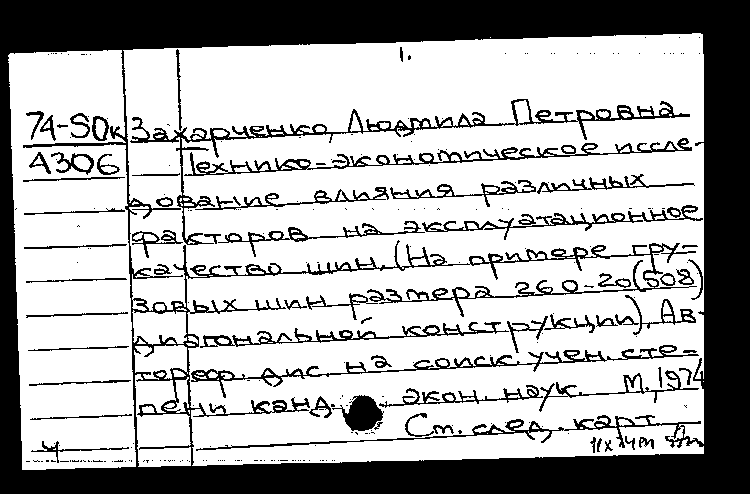 1.
74-50к Захарченко, Людмила Петровна.
А306 Технико-экономическое иссле-
дование влияния различных
факторов на эксплуатационное
качество шин. (На примере гру-
зовых шин размера 260-20(508)
диагональной конструкции). Ав-
тореф. дис. на соиск. учен. сте-
пени канд. экон. наук. М., 1974
См. след. карт.
4